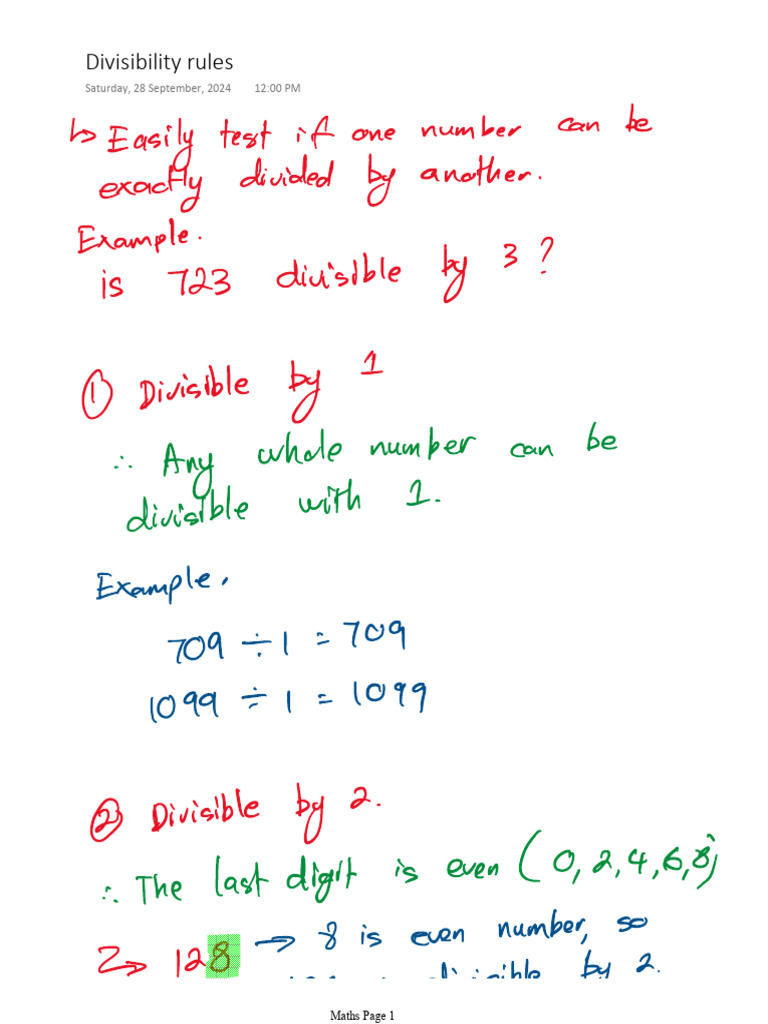 Divisibility rules
Saturday, 28 September, 2024 12:00 PM
↳ Easily test if one number can be
exactly divided by another.
Example.
is 723 divisible by 3?
① Divisible by 1
∴ Any whole number can be
divisible with 1.
Example.
709 ÷ 1 = 709
1099 ÷ 1 = 1099
② Divisible by 2.
∴ The last digit is even (0, 2, 4, 6, 8)
128 → 8 is even number, so
divisible by 2.
Maths Page 1